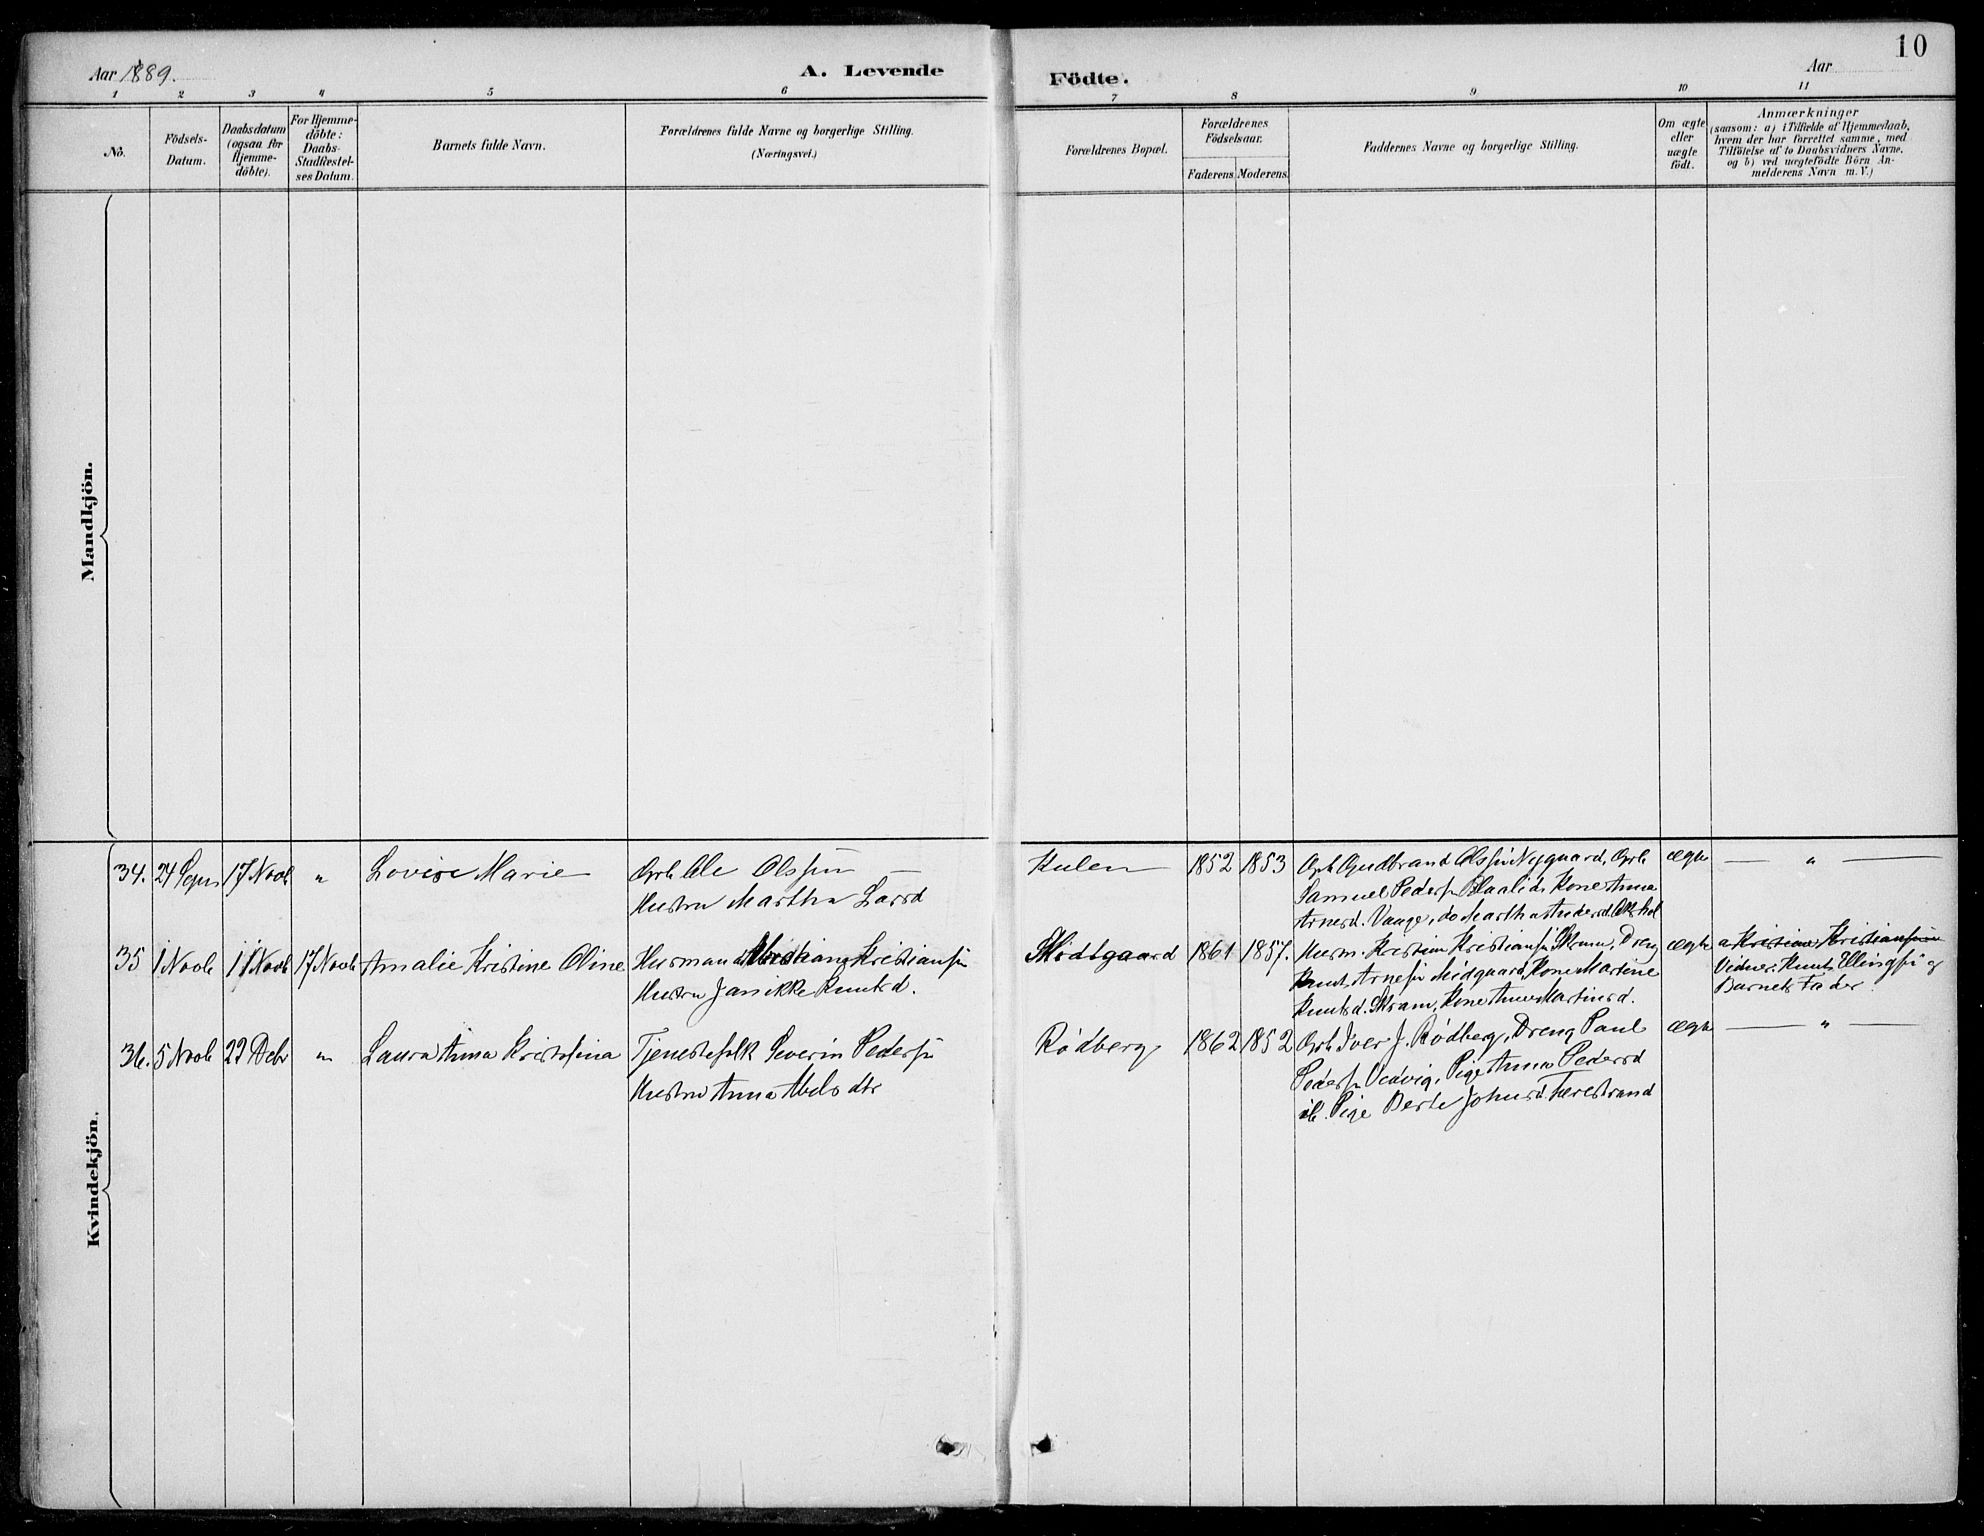 10
Aar 1889.
A. Levende
Födte.
Aar
1 2 3 4 5 6 7 8 9 10 11
No.
Födsels-
Datum.
Daabsdatum
(ogsaa for
Hjemme-
döbte).
For Hjemme-
döbte:
Daabs-
Stadfæstel-
ses Datum.
Barnets fulde Navn.
Forældrenes fulde Navne og borgerlige Stilling.
(Næringsvei.)
Forældrenes Bopæl.
Forældrenes
Födselsaar.
Faderens Moderens.
Faddernes Navne og borgerlige Stilling.
Om ægte
eller
uægte
födt.
Anmærkninger
(saasom: a) i Tilfælde af Hjemmedaab,
hvem der har forrettet samme, med
Tilföielse af to Daabsvidners Navne,
og b) ved uægtefödte Börn An-
melderens Navn m. V.)
Mandkjön.
Kvindekjön.
34. 24 17 Novb " Lovise Marie
Grb. Ole Olssøn
Hustru Martha Larsd
Kulen 1852 1853
Grb Gudbrand Olssøn Nygaard, Grb.
Samuel Peders. Blaalid, Kone Anna
Arnesd. Vaage, do Martha Andersd.
ægte "
35 1 Novb 11 Novb 17 Novb Amalie Kristine Oline
Husmand Kristiansøn
Hustru Jannikke Knutsd.
Midtgaard 1861 1857.
Husm. Kristian Kristiansøn Skram, Dreng
Knut Arnesøn Midgaard, Kone Martine
Knutsd. Skram, Kone Anne Martinsd.
ægte
a Kristian Kristiansøn
Vidner: Knut Ellingsøn og
Barnets Fader.
36. 5 Novb 29 Debr " Laura Anna Kristina
Tjenestefolk Severin Pedersøn
Hustru Anna Abelsdtr
Rødberg 1862 1852
Grb Iver J. Rødberg, Dreng Paul
Peders. Vedvig, Pige Anna Pedersd
ib. Pige Berte Johnsd. Færestrand
ægte "